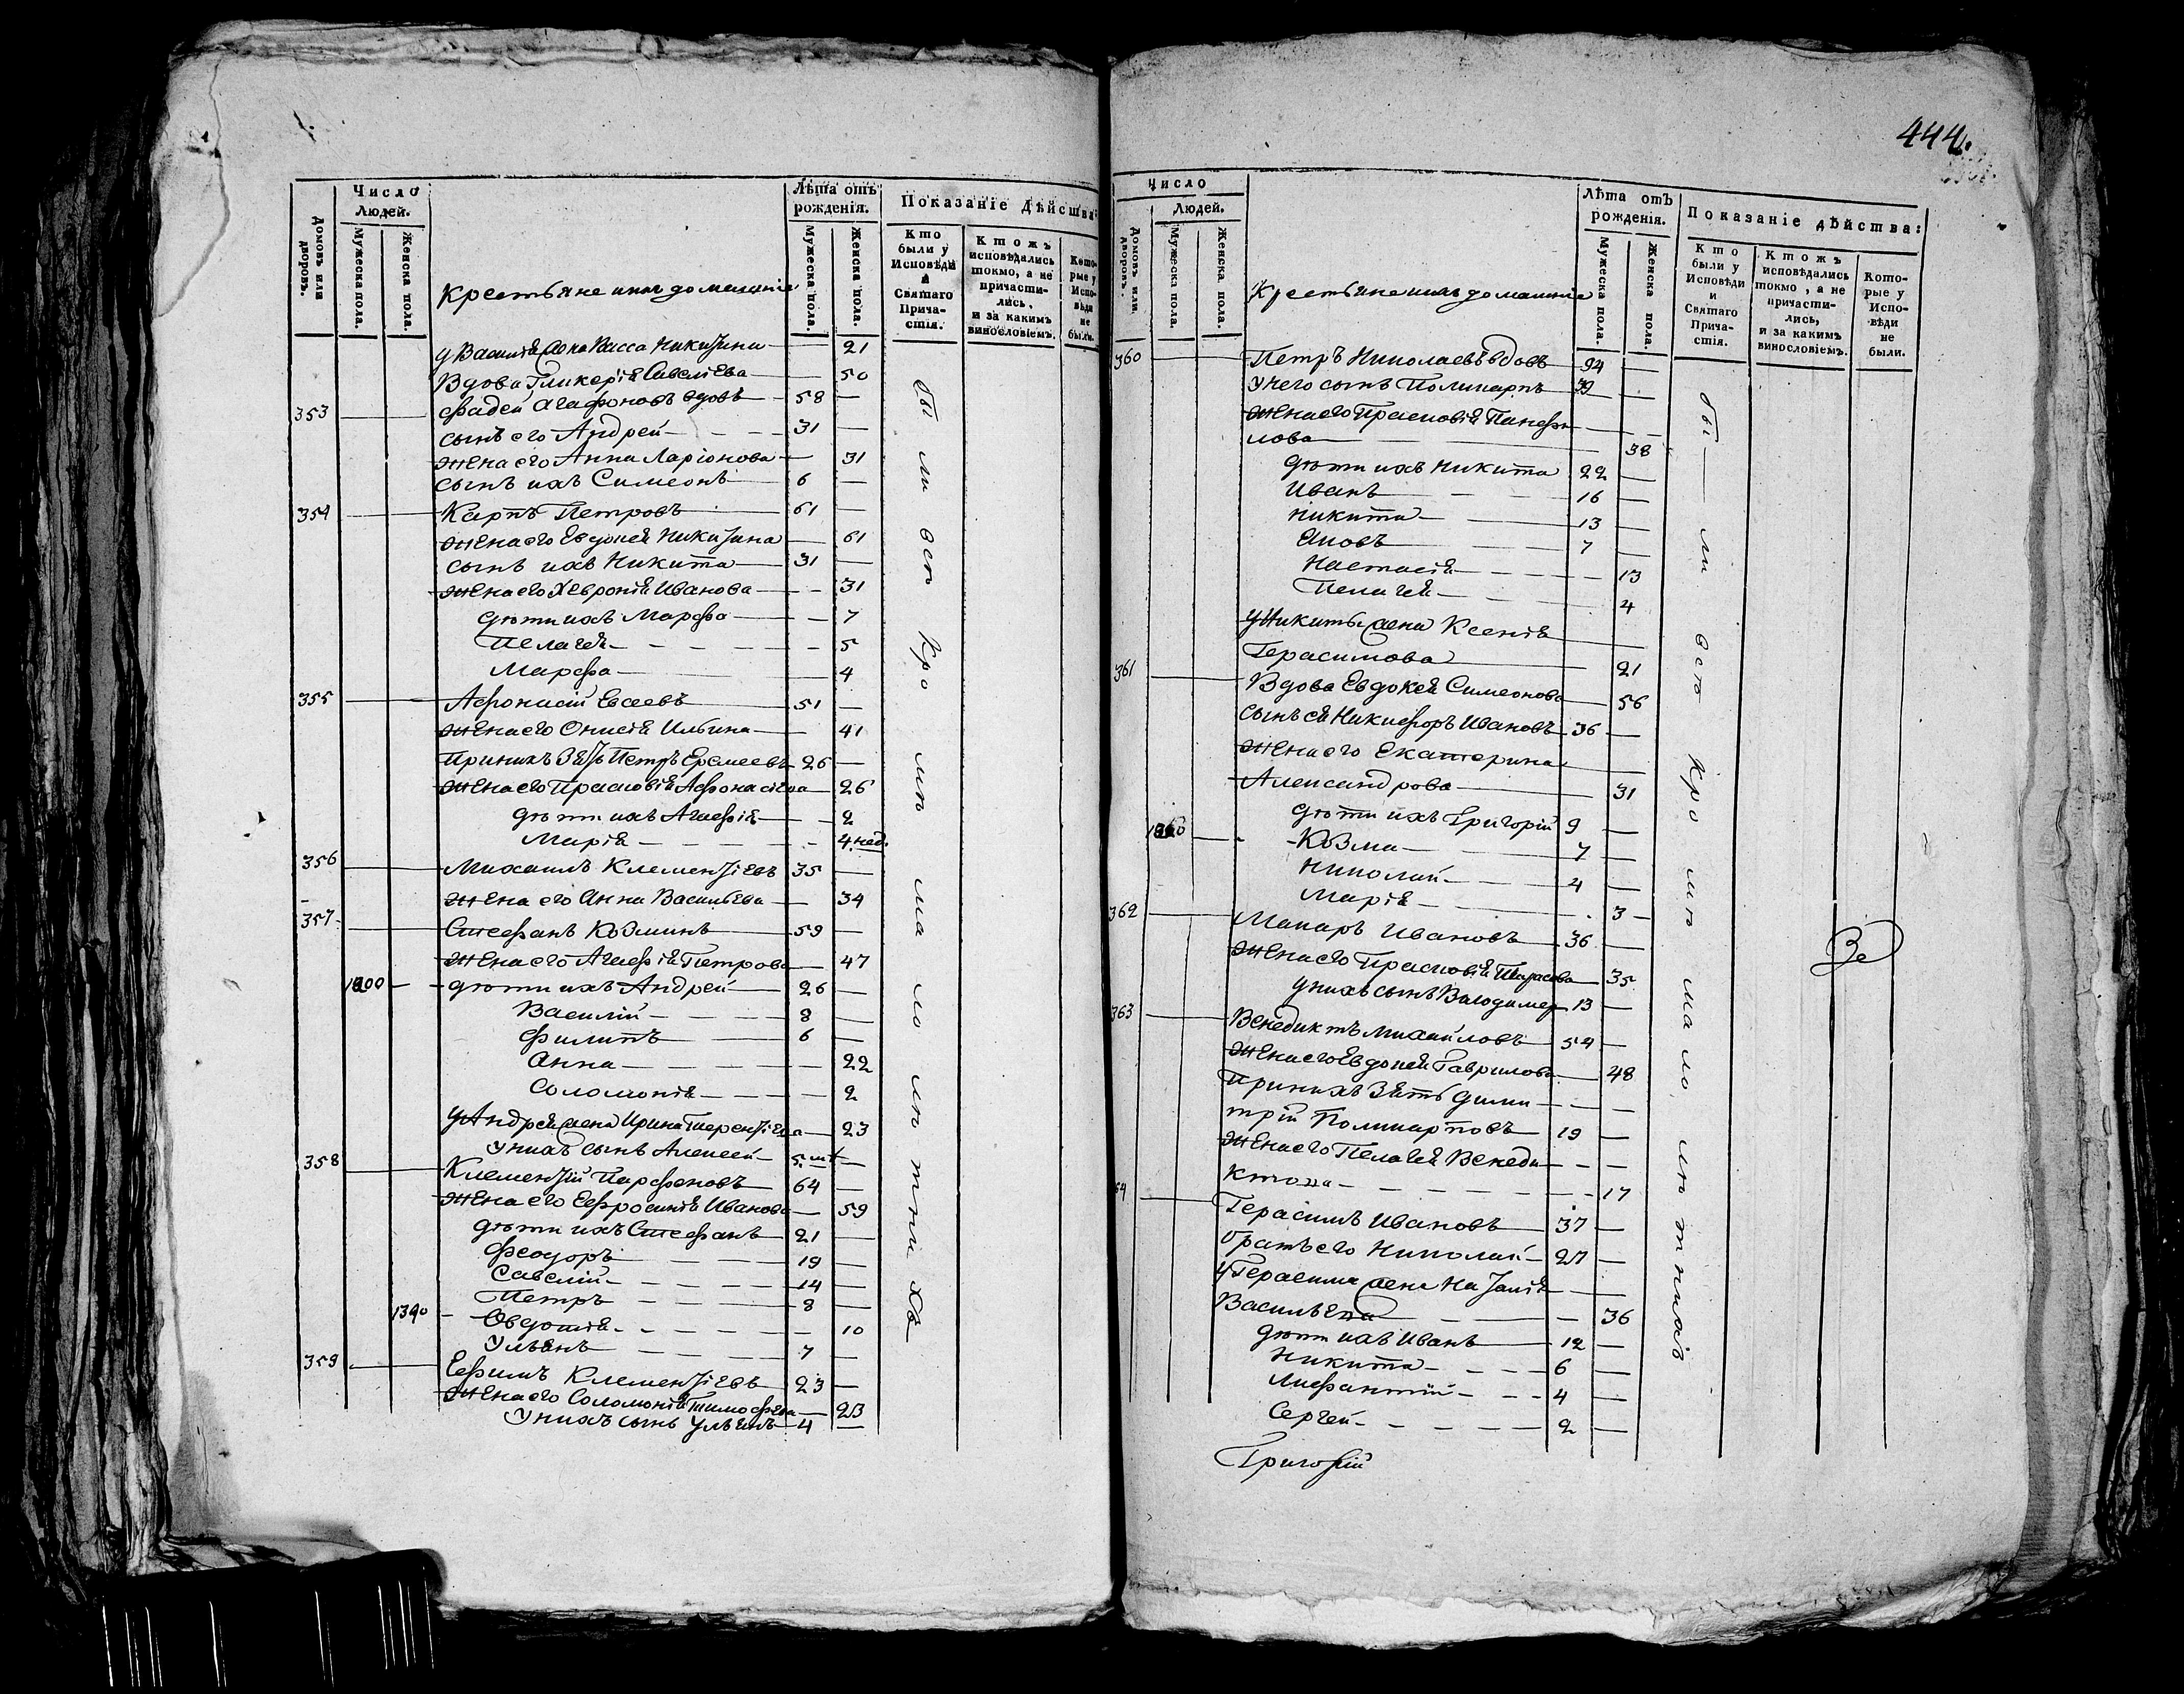 Число
Людей.
Домовъ или дворовъ.
Мужеска пола.
Женска пола.
Крестьяне и ихъ домашнiе
Лѣта отъ рожденiя.
Мужеска пола.
Женска пола.
Показанiе дѣйства:
Кто были у Исповѣди и Святаго Причастiя.
Ктожъ исповѣдались токмо, а не причастились, и за какимъ винословiемъ.
Которые у Исповѣди не были.
у Василiя жена Васса Никитина 21
Вдова Гликерiя Савелiева 50
353 Фадей Агафоновъ вдовъ 58
сынъ его Андрей 31
жена его Анна Ларiонова 31
сынъ ихъ Симеонъ 6
354 Карпъ Петровъ 61
жена его Евдокея Никитина 61
сынъ ихъ Никита 31
жена его Хевронiя Иванова 31
дѣти ихъ Марфа 7
Пелагея 5
Марфа 4
355 Афонасiй Евсеевъ 51
жена его Онисiя Ильина 41
При нихъ зять Петръ Еремеевъ 26
жена его Прасковiя Афонасiева 26
дѣти ихъ Агафiя 2
Марiя 4 нед.
356 Михаилъ Клементiевъ 35
жена его Анна Васильева 34
357 Стефанъ Козминъ 59
жена его Агафiя Петрова 47
дѣти ихъ Андрей 26
Василiй 8
Филипъ 6
Анна 22
Соломонiя 2
у Андрея жена Ирина Терентiева 23
у нихъ сынъ Алексей 5
358 Клементiй Парфеновъ 64
жена его Ефросинiя Иванова 59
дѣти ихъ Стефанъ 21
Феодоръ 19
Савелiй 14
Петръ 8
1390 Овдотiя 10
Ульянъ 7
359 Ефимъ Клементiевъ 23
жена его Соломонiя Тимофеева 23
у нихъ сынъ Ульянъ 4
были всѣ кромѣ малолѣтнихъ
444.
Число
Людей.
Домовъ или дворовъ.
Мужеска пола.
Женска пола.
Крестьяне и ихъ домашнiе
Лѣта отъ рожденiя.
Мужеска пола.
Женска пола.
Показанiе дѣйства:
Кто были у Исповѣди и Святаго Причастiя.
Ктожъ исповѣдались токмо, а не причастились, и за какимъ винословiемъ.
Которые у Исповѣди не были.
360 Петръ Николаевъ вдовъ 94
У него сынъ Поликарпъ 39
жена его Прасковiя Панфи
лова 38
дѣти ихъ Никита 22
Иванъ 16
Никита 13
Яковъ 7
Настасiя 13
Пелагея 4
у Никиты жена Ксенiя
Герасимова 21
361 Вдова Евдокея Симеонова 56
сынъ ея Никифоръ Ивановъ 36
жена его Екатерина
Александрова 31
дѣти ихъ Григорiй 9
Козма 7
Николай 4
Марiя 3
362 Макаръ Ивановъ 36
жена его Прасковiя 35
у нихъ сынъ Володимер 13
363 Венедиктъ Михайловъ 54
жена его Евдокея Гаврилова 48
При нихъ зять Дими
трiй Поликарповъ 19
жена его Пелагея Венеди
ктова 17
64 Герасимъ Ивановъ 37
братъ его Николай 27
у Герасима жена Наталiя
Васильева 36
дѣти ихъ Иванъ 12
Никита 6
Лифантiй 4
Сергей 2
были всѣ кромѣ малолѣтнихъ
Григорiй